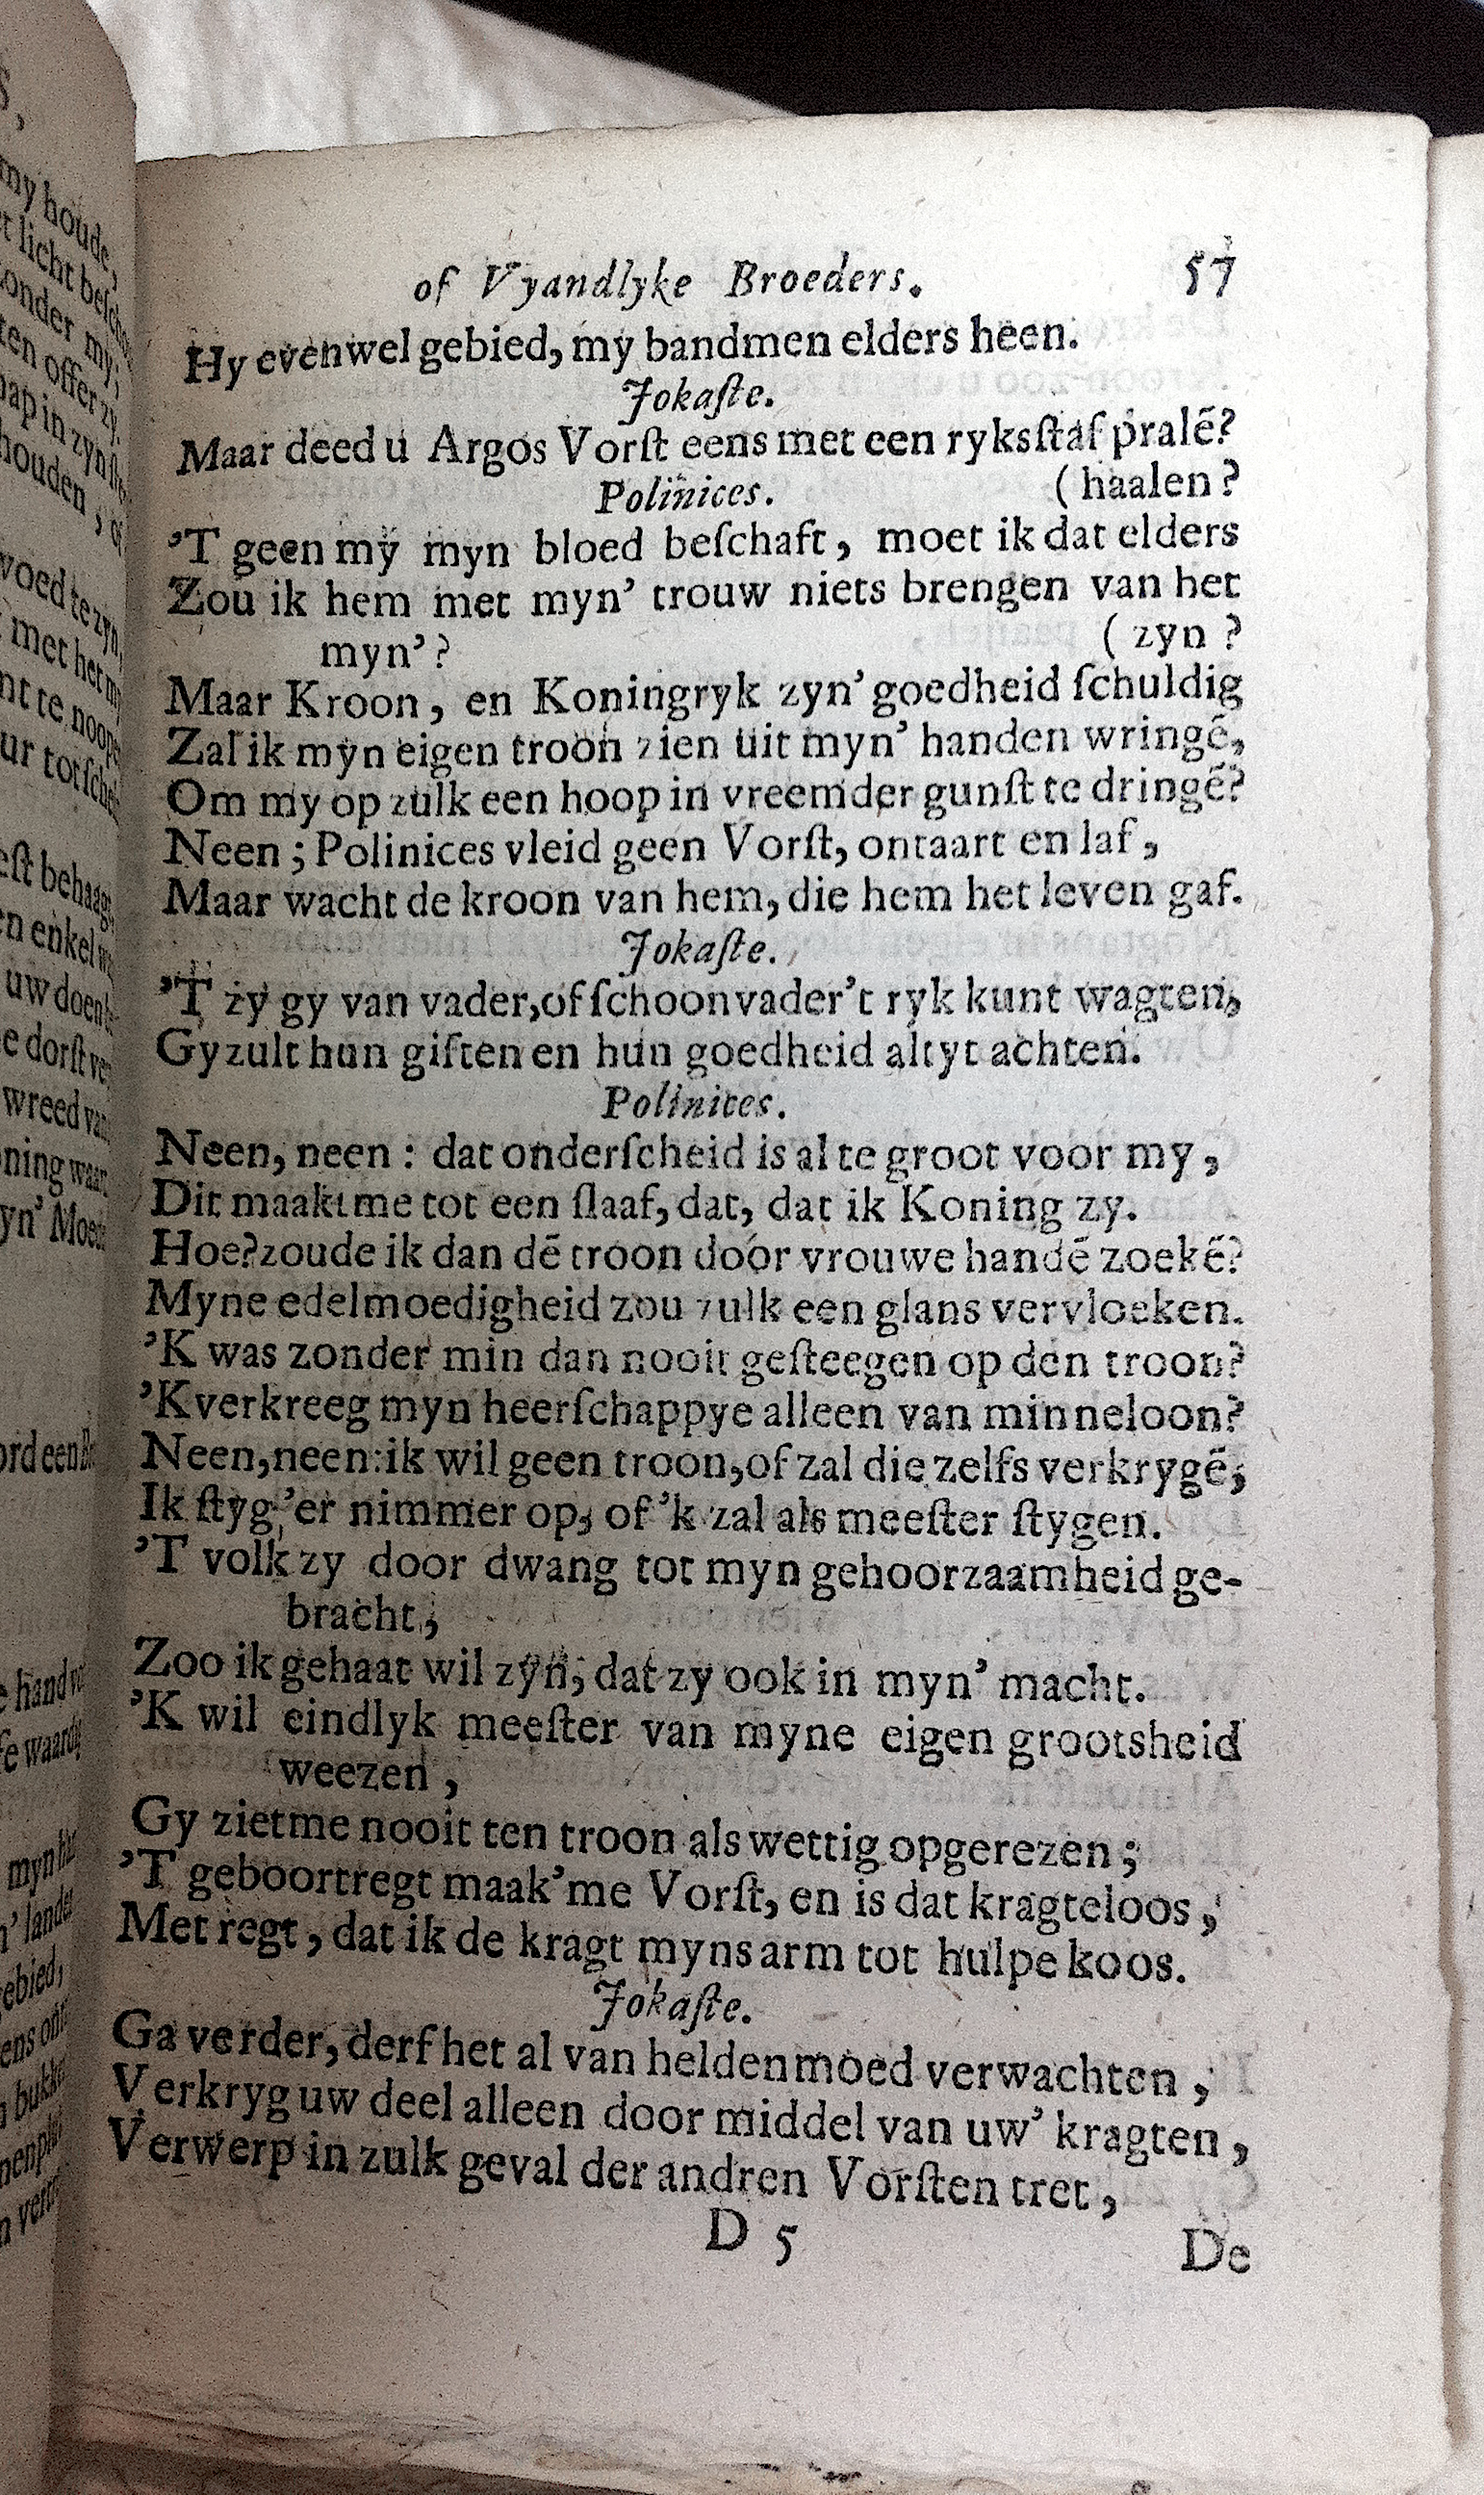 of Vyandlyke Broeders. 57
Hy evenwel gebied, my bandmen elders heen.
Jokaſte.
Maar deed u Argos Vorſt eens met een ryksſtaf pralẽ?
Polinices. (haalen?
'T geen my myn bloed beſchaft, moet ik dat elders
Zou ik hem met myn' trouw niets brengen van het
myn'? (zyn?
Maar Kroon, en Koningryk zyn' goedheid ſchuldig
Zal ik myn eigen troon zien uit myn' handen wringẽ,
Om my op zulk een hoop in vreemder gunſt te dringẽ?
Neen; Polinices vleid geen Vorſt, ontaart en laf,
Maar wacht de kroon van hem, die hem het leven gaf.
Jokaſte.
'T zy gy van vader, of ſchoonvader't ryk kunt wagten,
Gy zult hun giften en hun goedheid altyt achten.
Polinices.
Neen, neen: dat onderſcheid is al te groot voor my,
Dit maakt me tot een ſlaaf, dat, dat ik Koning zy.
Hoe? zoude ik dan dẽ troon door vrouwe handẽ zoekẽ?
Myne edelmoedigheid zou zulk een glans vervloeken.
'K was zonder min dan nooit geſteegen op den troon?
'K verkreeg myn heerſchappye alleen van minneloon?
Neen, neen: ik wil geen troon, of zal die zelfs verkrygẽ;
Ik ſtyg 'er nimmer op, of 'k zal als meeſter ſtygen.
'T volk zy door dwang tot myn gehoorzaamheid ge-
bracht;
Zoo ik gehaat wil zyn, dat zy ook in myn' macht.
'K wil eindlyk meeſter van myne eigen grootsheid
weezen,
Gy ziet me nooit ten troon als wettig opgerezen;
'T geboortregt maak' me Vorſt, en is dat kragteloos,
Met regt, dat ik de kragt myns arm tot hulpe koos.
Jokaſte.
Ga verder, derf het al van heldenmoed verwachten,
Verkryg uw deel alleen door middel van uw' kragten,
Verwerp in zulk geval der andren Vorſten tret,
D 5 De